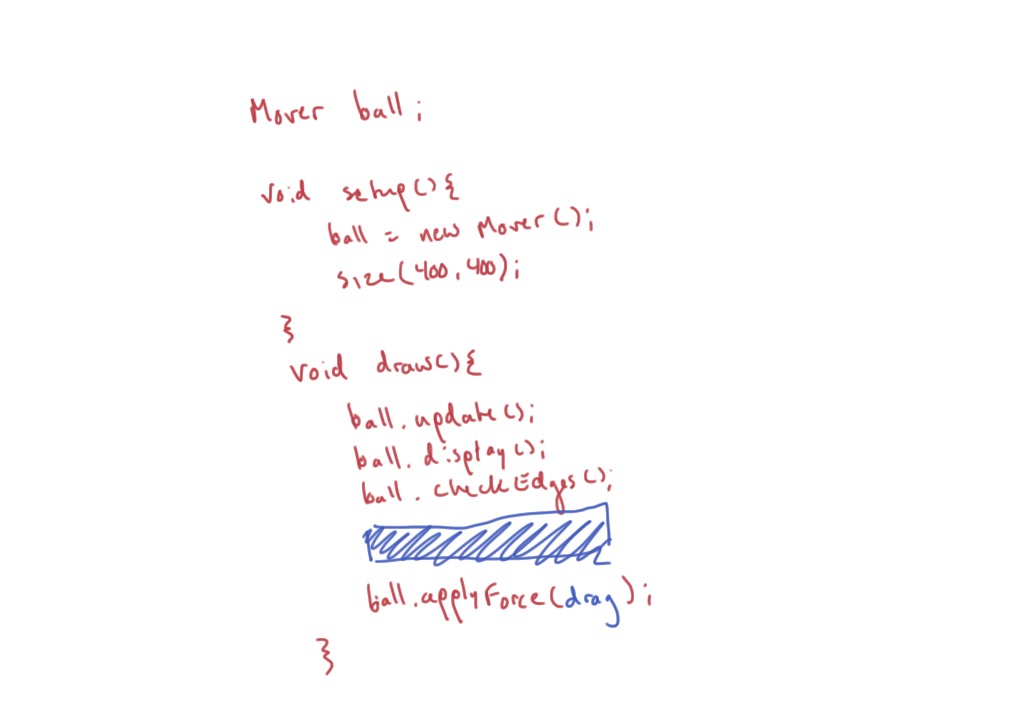 Mover ball;
void setup(){
ball = new Mover();
size(400,400);
}
void draw(){
ball.update();
ball.display();
ball.checkEdges();
ball.applyForce(drag);
}